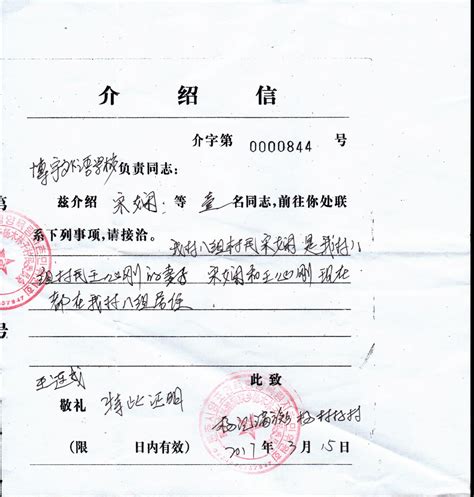 介 绍 信
介字第 0000844 号
博宇外语学校负责同志：
兹介绍 宋娴 等 壹 名同志，前往你处联
系下列事项，请接洽。
我村八组村民宋娴是我村八
组村民王心刚的妻子 宋娴和王心刚现在
都在我村八组居住
第
号
此致
敬礼 特此证明
村村
（限 日内有效） 2017 年 3 月 15 日